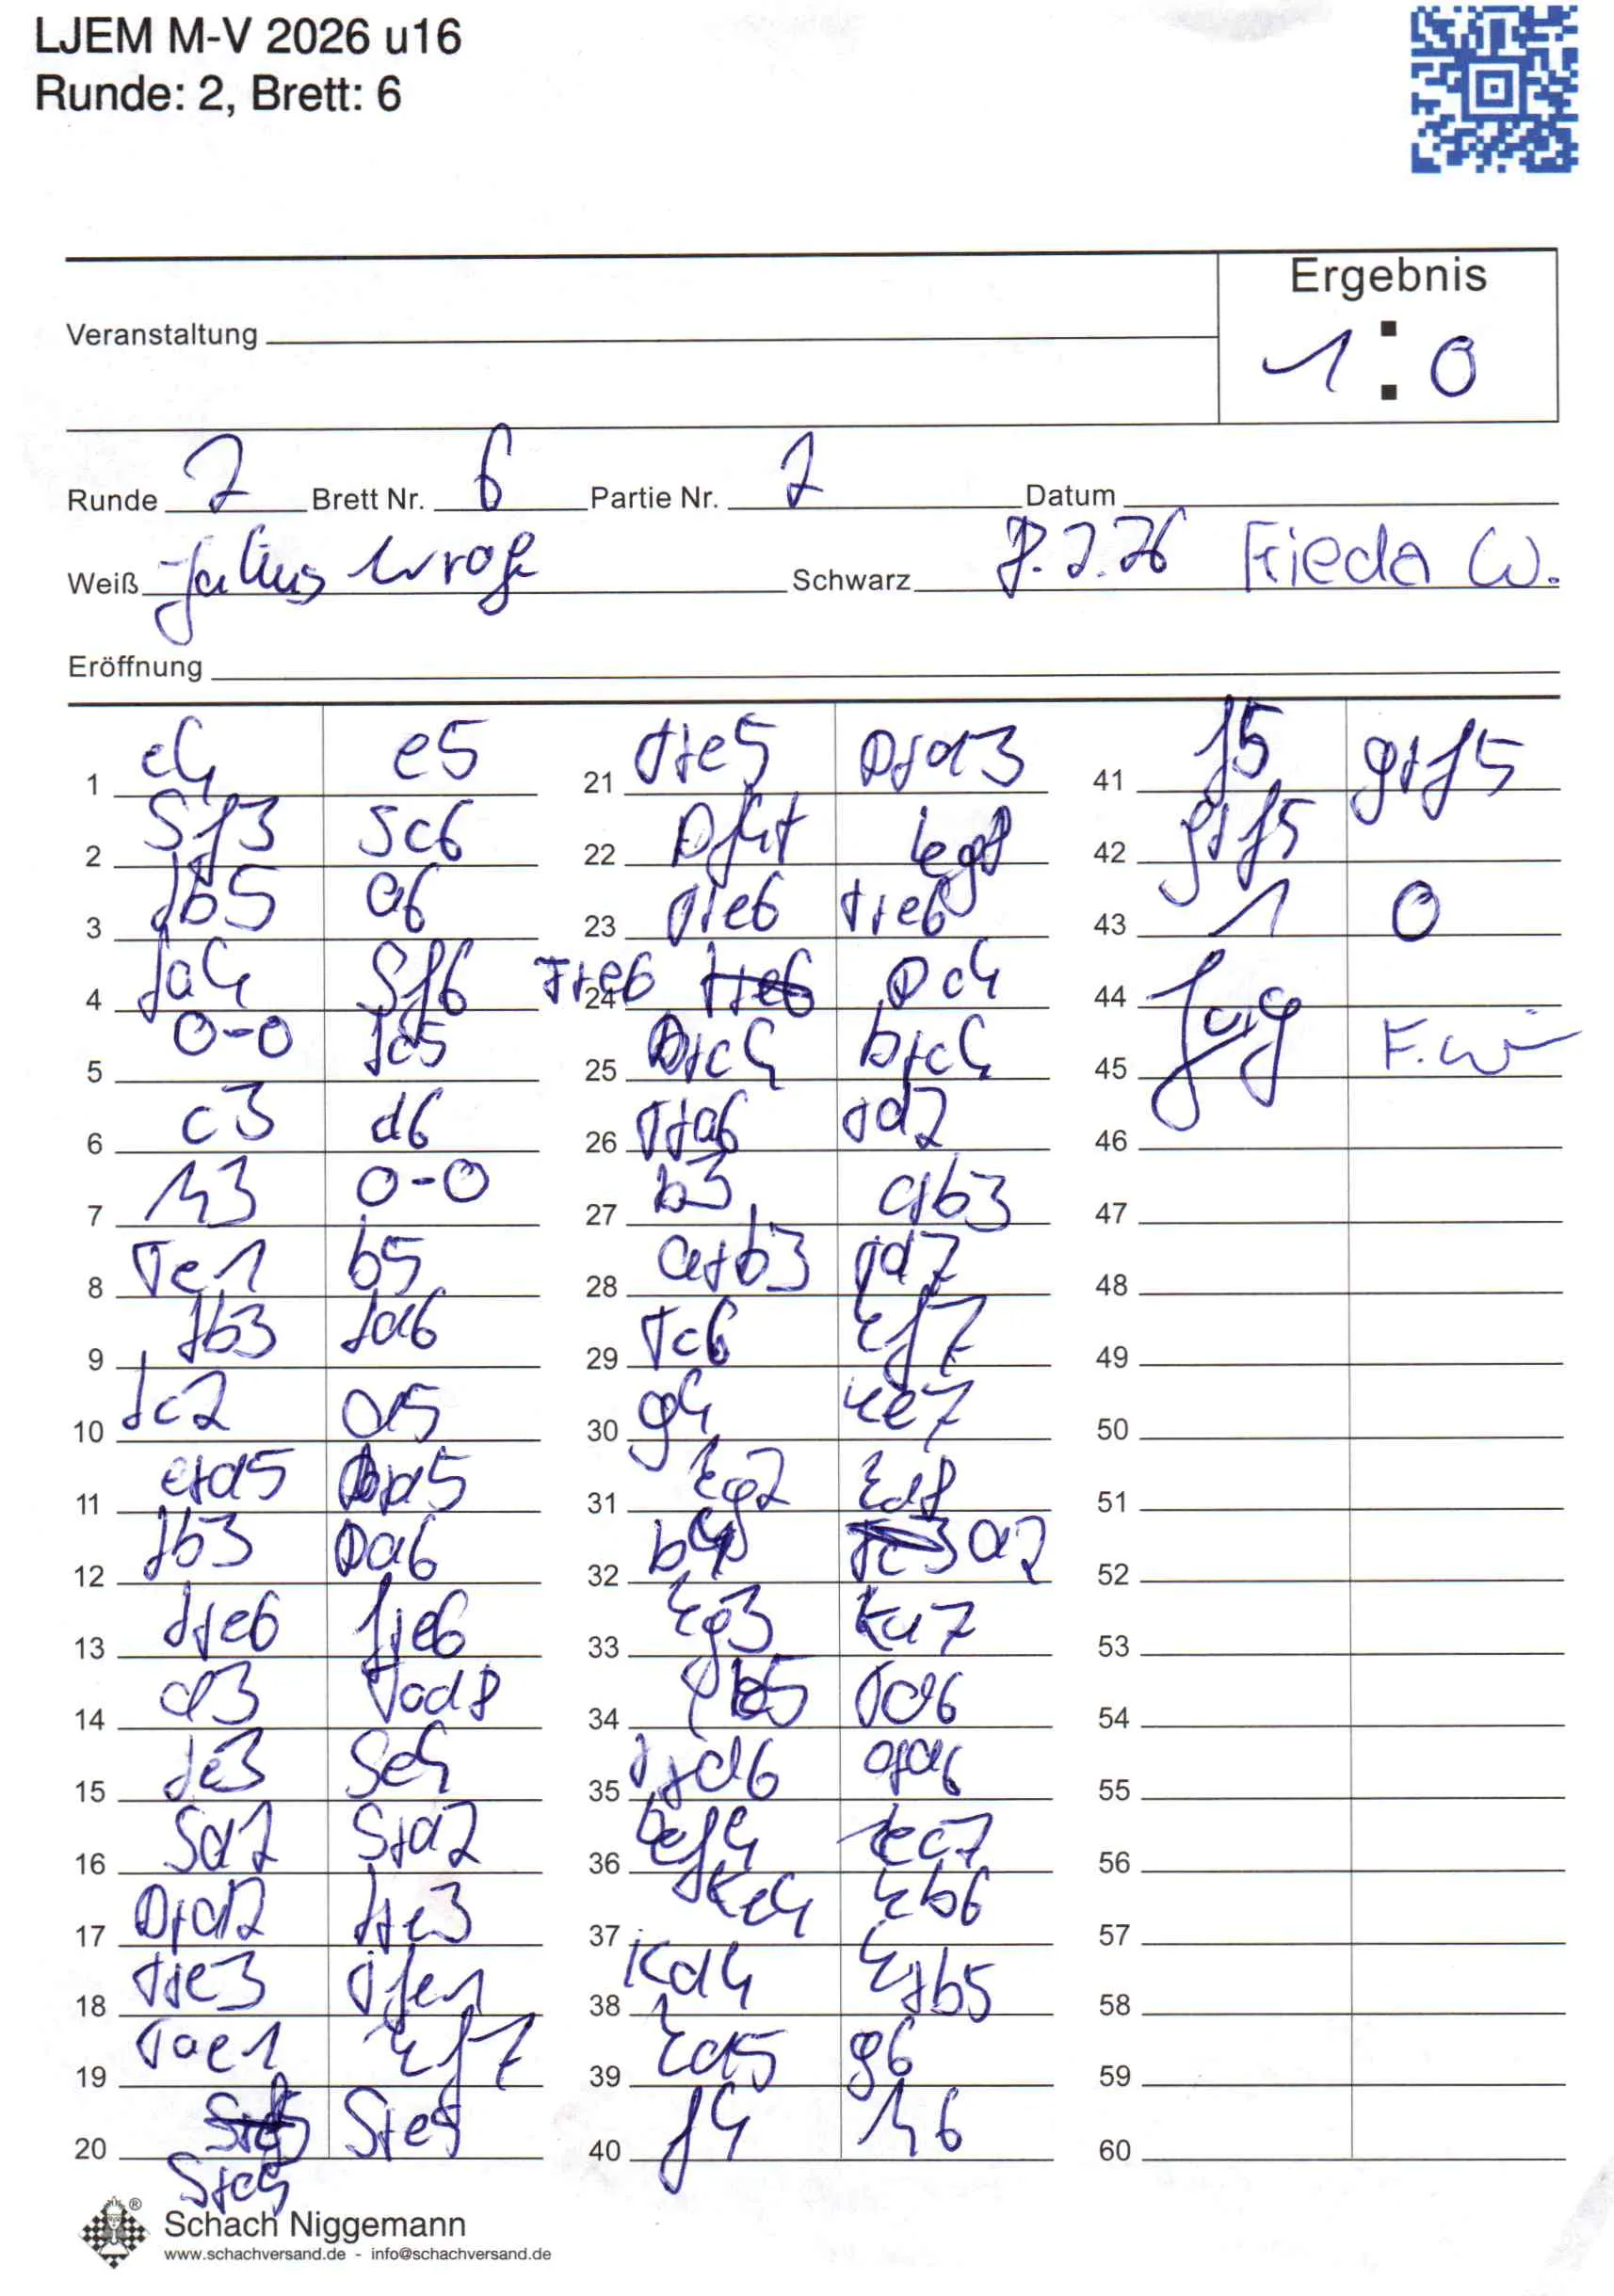 LJEM M-V 2026 u16
Runde: 2, Brett: 6
Ergebnis
1 : 0
Veranstaltung
Runde 2 Brett Nr. 6 Partie Nr. 2 Datum
Weiß Julius Schwarz 8.2.26 Frieda W.
Eröffnung
1 e4 e5
2 Sf3 Sc6
3 Lb5 a6
4 La4 Sf6
5 0-0 Lc5
6 c3 d6
7 h3 0-0
8 Te1 b5
9 Lb3 La6
10 Lc2 a5
11 a5
12 Lb3 Da6
13 Lxe6 fxe6
14 d3 Tad8
15 Le3 Se4
16 Sd2 Sxd2
17 Dxd2 Lxe3
18 Txe3 Txe1
19 Tae1 Kf7
20 Sxe5 Sxe5
21 Txe5 Dxd3
22 Df4+ Kg8
23 Txe6 Txe6
24 Txe6 Dc4
25 Dxc4 bxc4
26 Txa6 Td2
27 b3 cxb3
28 axb3 Td7
29 Tc6 Kf7
30 g4 Ke7
31 Kg2 Kd8
32 b4 a2
33 Kg3 Ka7
34 b5 Td6
35 Txd6 cxd6
36 Kf4 Kc7
37 Ke4 Kb6
38 Kd4 Kxb5
39 Kd5 g6
40 f4 h6
41 f5 gxf5
42 gxf5
43 1 0
44
45 F.W
46
47
48
49
50
51
52
53
54
55
56
57
58
59
60
Schach Niggemann
www.schachversand.de - info@schachversand.de